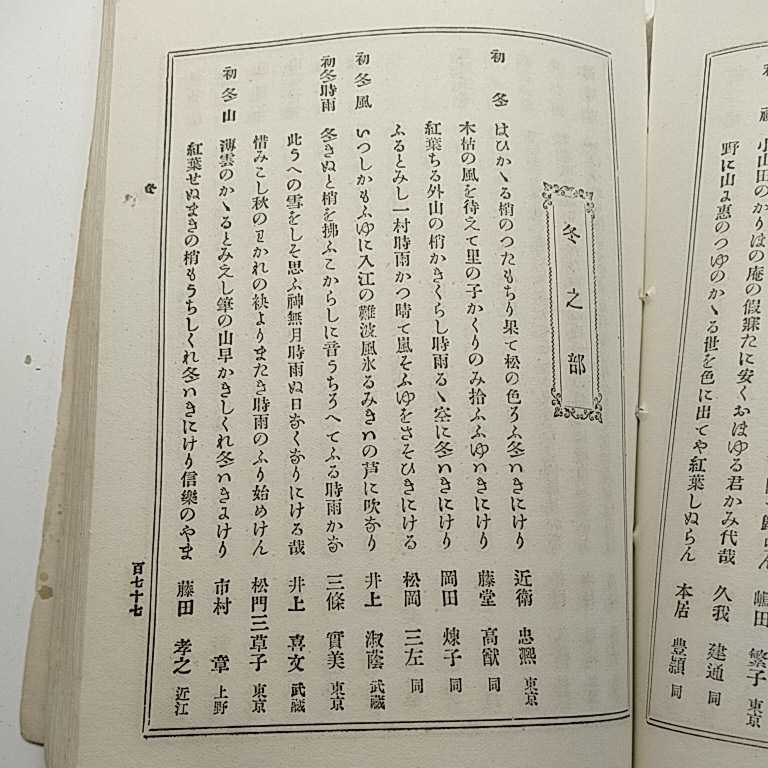 嶋田 繁子 東京
小山田のかりほの庵の假寐たに安くおほゆる君かみ代哉 久我 建通 同
野に山よ惠のつゆのかゝる世を色に出てや紅葉しぬらん 本居 豊頴 同
冬之部
初冬 はひかゝる梢のつたもちり果て松の色そふ冬いきにけり 近衞 忠熈 東京
木枯の風を待えて里の子かくりのみ拾ふふゆいきにけり 藤堂 高猷 同
紅葉ちる外山の梢かきくらし時雨るゝ空に冬いきにけり 岡田 煉子 同
ふるとみし一村時雨かつ晴て嵐そふゆをさそひきにける 松岡 三左 同
初冬風 いつしかもふゆに入江の難波風氷るみきいの芦に吹なり 井上 淑蔭 武藏
初冬時雨 冬きぬと梢を拂ふこからしに音うちそへてふる時雨かな 三條 實美 東京
此うへの雪をしそ思ふ神無月時雨ぬ日なくなりにける哉 井上 喜文 武藏
惜みこし秋のわかれの袂よりまたき時雨のふり始めけん 松門三草子 東京
初冬山 薄雲のかゝるとみえし筆の山早かきしくれ冬いきよけり 市村 章 上野
紅葉せぬまきの梢もうちしくれ冬いきにけり信樂のやま 藤田 孝之 近江
冬
百七十七